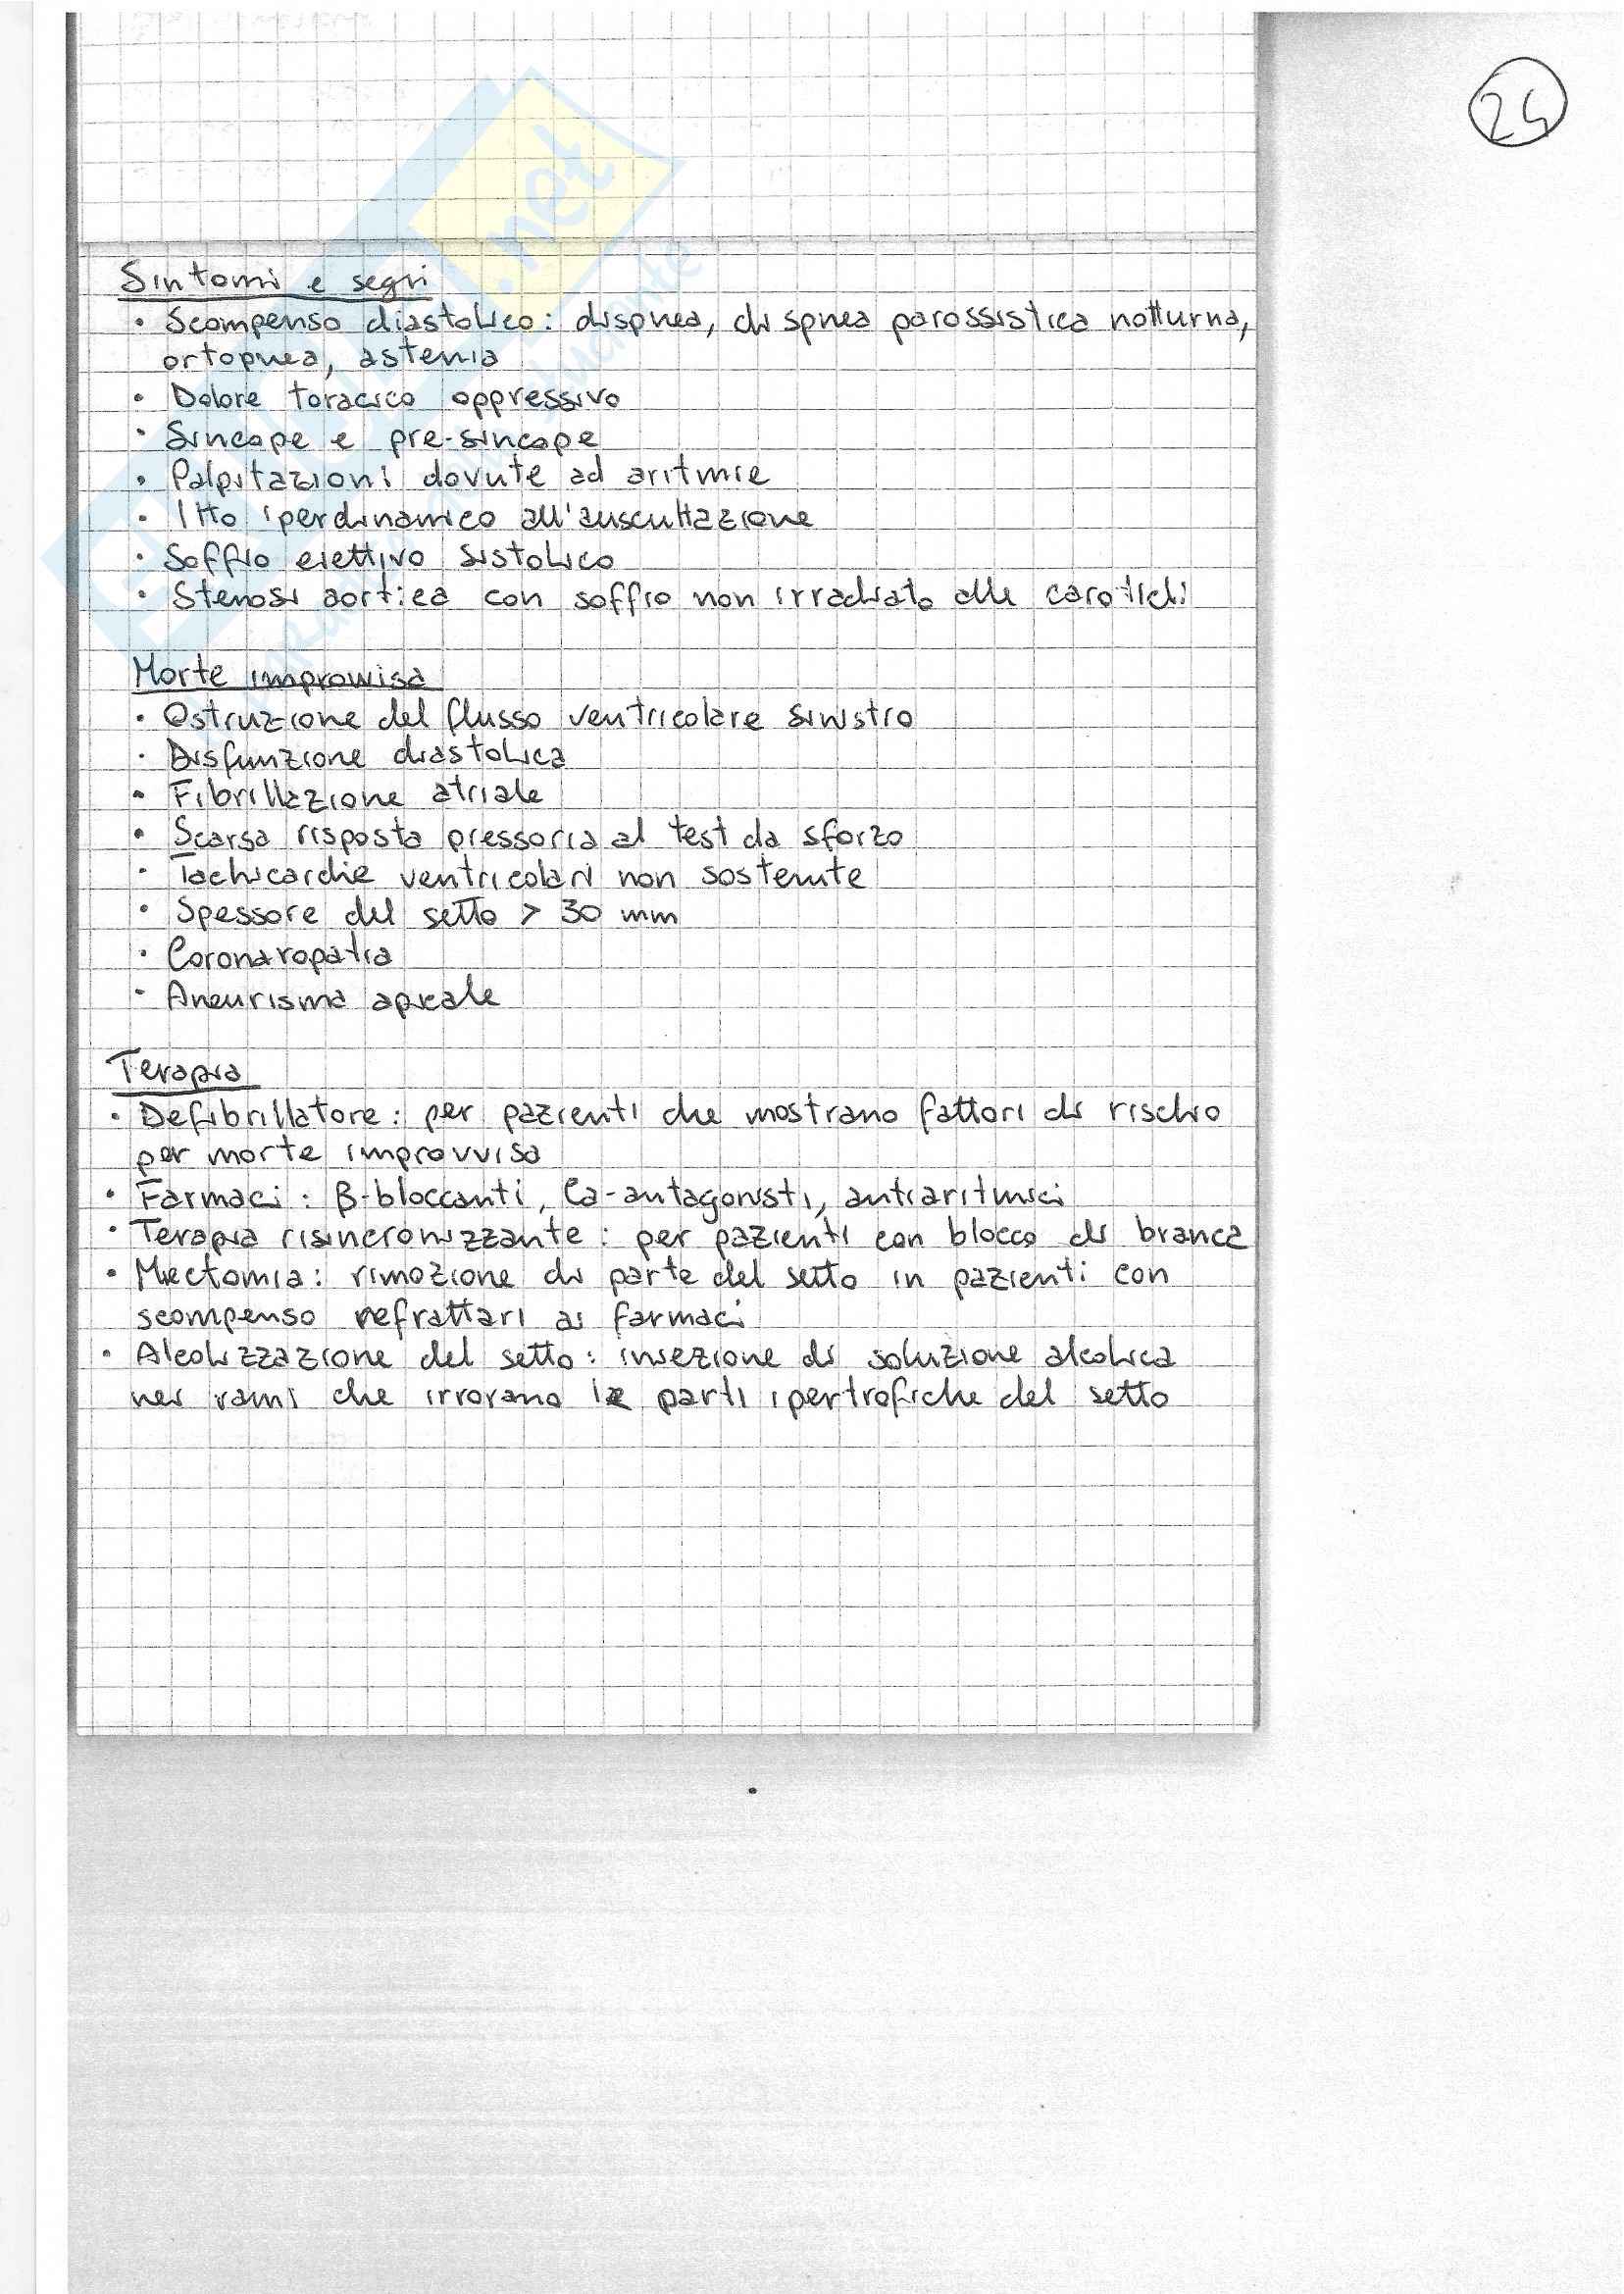 24
Sintomi e segni
• Scompenso diastolico: dispnea, dispnea parossistica notturna,
ortopnea, astenia
• Dolore toracico oppressivo
• Sincope e pre-sincope
• Palpitazioni dovute ad aritmie
• Itto iperdinamico all'auscultazione
• Soffio eiettivo sistolico
• Stenosi aortica con soffio non irradiato alle carotidi
Morte improvvisa
• Ostruzione del flusso ventricolare sinistro
• Disfunzione diastolica
• Fibrillazione atriale
• Scarsa risposta pressoria al test da sforzo
• Tachicardie ventricolari non sostenute
• Spessore del setto > 30 mm
• Coronaropatia
• Aneurisma apicale
Terapia
• Defibrillatore: per pazienti che mostrano fattori di rischio
per morte improvvisa
• Farmaci: β-bloccanti, Ca-antagonisti, antiaritmici
• Terapia risincronizzante: per pazienti con blocco di branca
• Miectomia: rimozione di parte del setto in pazienti con
scompenso refrattari ai farmaci
• Alcolizzazione del setto: iniezione di soluzione alcolica
nei rami che irrorano le parti ipertrofiche del setto
.net